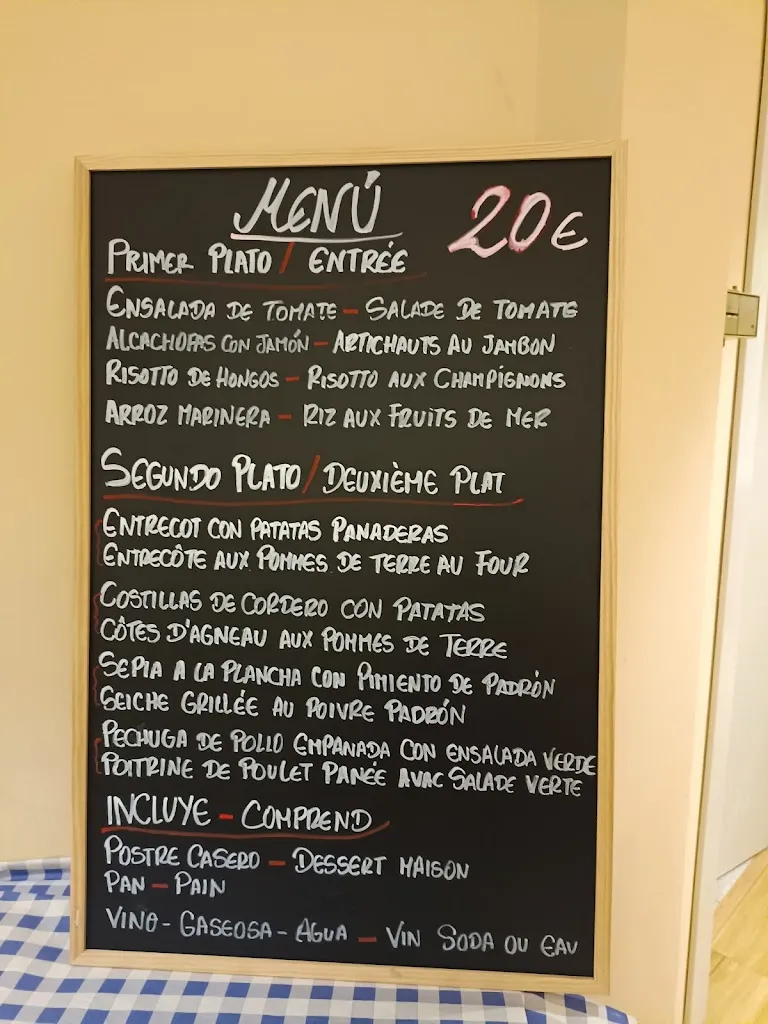 MENÚ 20€
PRIMER PLATO / ENTRÉE
ENSALADA DE TOMATE - SALADE DE TOMATE
ALCACHOFAS CON JAMÓN - ARTICHAUTS AU JAMBON
RISOTTO DE HONGOS - RISOTTO AUX CHAMPIGNONS
ARROZ MARINERA - RIZ AUX FRUITS DE MER
SEGUNDO PLATO / DEUXIÈME PLAT
ENTRECOT CON PATATAS PANADERAS
ENTRECÔTE AUX POMMES DE TERRE AU FOUR
COSTILLAS DE CORDERO CON PATATAS
CÔTES D'AGNEAU AUX POMMES DE TERRE
SEPIA A LA PLANCHA CON PIMIENTO DE PADRÒN
SEICHE GRILLÉE AU POIVRE PADRÓN
PECHUGA DE POLLO EMPANADA CON ENSALADA VERDE
POITRINE DE POULET PANÉE AVAC SALADE VERTE
INCLUYE - COMPREND
POSTRE CASERO - DESSERT MAISON
PAN - PAIN
VINO - GASEOSA - AGUA - VIN SODA OU EAU